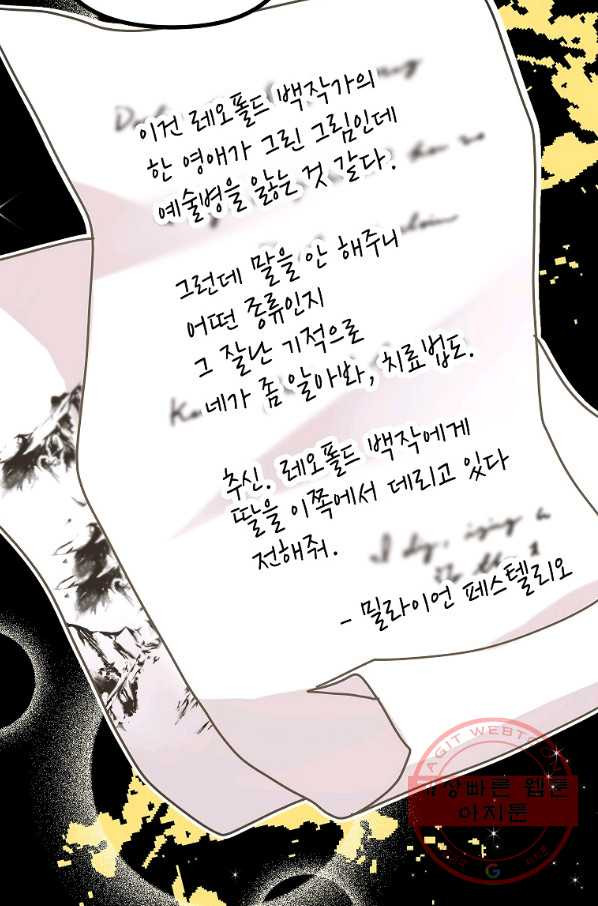 이건 레오폴드 백작가의
한 영애가 그린 그림인데
예술병을 앓는 것 같다.
그런데 말을 안 해주니
어떤 종류인지
그 잘난 기적으로
네가 좀 알아봐, 치료법도.
추신. 레오폴드 백작에게
딸을 이쪽에서 데리고 있다
전해줘.
- 밀라이언 페스텔리오
AGIT WEBTOON
세상빠른 웹툰
아지툰